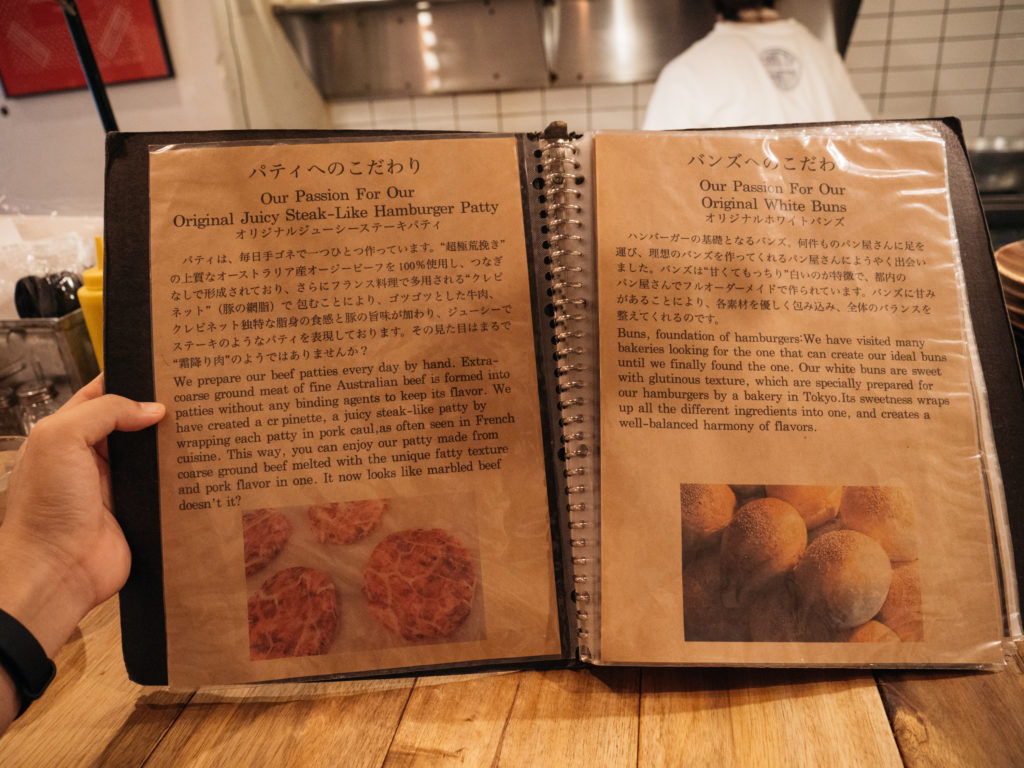 パティへのこだわり
Our Passion For Our
Original Juicy Steak-Like Hamburger Patty
オリジナルジューシーステーキパティ
パティは、毎日手ゴネで一つひとつ作っています。“超極荒挽き”
の上質なオーストラリア産オージービーフを100%使用し、つなぎ
なしで形成されており、さらにフランス料理で多用される“クレピ
ネット”(豚の網脂)で 包むことにより、ゴツゴツとした牛肉、
クレピネット独特な脂身の食感と豚の旨味が加わり、ジューシーで
ステーキのようなパティを表現しております。その見た目はまるで
“霜降り肉”のようではありませんか?
We prepare our beef patties every day by hand. Extra-
coarse ground meat of fine Australian beef is formed into
patties without any binding agents to keep its flavor. We
have created a cr pinette, a juicy steak-like patty by
wrapping each patty in pork caul,as often seen in French
cuisine. This way, you can enjoy our patty made from
coarse ground beef melted with the unique fatty texture
and pork flavor in one. It now looks like marbled beef
doesn't it?
バンズへのこだわ
Our Passion For Our
Original White Buns
オリジナルホワイトバンズ
ハンバーガーの基礎となるバンズ、何件ものパン屋さんに足を
運び、理想のバンズを作ってくれるパン屋さんにようやく出会い
ました。バンズは“甘くてもっちり”白いのが特徴で、都内の
パン屋さんでフルオーダーメイドで作られています。バンズに甘み
があることにより、各素材を優しく包み込み、全体のバランスを
整えてくれるのです。
Buns, foundation of hamburgers:We have visited many
bakeries looking for the one that can create our ideal buns
until we finally found the one. Our white buns are sweet
with glutinous texture, which are specially prepared for
our hamburgers by a bakery in Tokyo.Its sweetness wraps
up all the different ingredients into one, and creates a
well-balanced harmony of flavors.